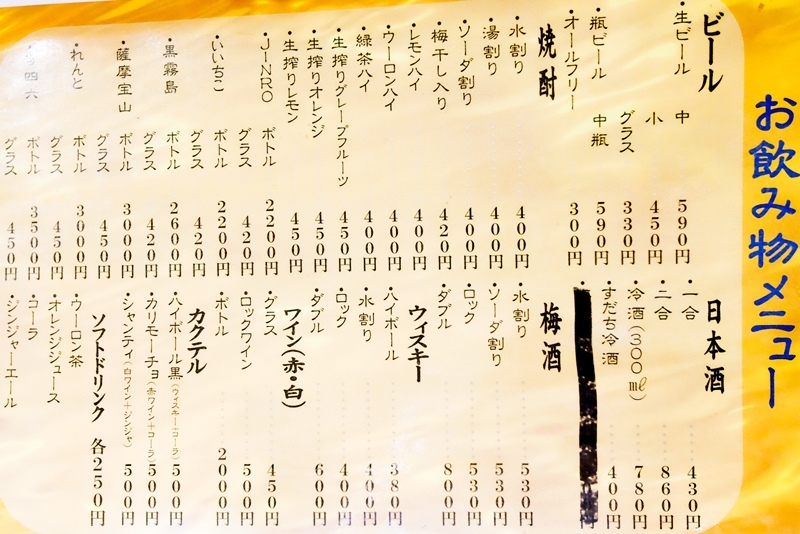 お飲み物メニュー
ビール
・生ビール 中 590円
小 450円
グラス 330円
・瓶ビール 中瓶 590円
・オールフリー 300円
焼酎
・水割り 400円
・湯割り 400円
・ソーダ割り 400円
・梅干し入り 420円
・レモンハイ 400円
・ウーロンハイ 400円
・緑茶ハイ 400円
・生搾りグレープフルーツ 450円
・生搾りオレンジ 450円
・生搾りレモン 450円
・JINRO ボトル 2200円
グラス 420円
・いいちこ ボトル 2200円
グラス 420円
・黒霧島 ボトル 2600円
グラス 420円
・薩摩宝山 ボトル 3000円
グラス 450円
・れんと ボトル 3000円
グラス 450円
四六 ボトル 3500円
グラス 450円
日本酒
・一合 430円
・二合 860円
・冷酒(300ml) 780円
・すだち冷酒 400円
梅酒
・水割り 530円
・ソーダ割り 530円
・ロック 530円
・ダブル 800円
ウィスキー
・ハイボール 380円
・水割り 400円
・ロック 400円
・ダブル 600円
ワイン(赤・白)
・グラス 450円
・ロックワイン 500円
・ボトル 2000円
カクテル
・ハイボール黒(ウィスキー+コーラ) 500円
・カリモーチョ(赤ワイン+コーラ) 500円
・シャンティ(白ワイン+ジンジャ) 500円
ソフトドリンク 各250円
・ウーロン茶
・オレンジジュース
・コーラ
・ジンジャーエール